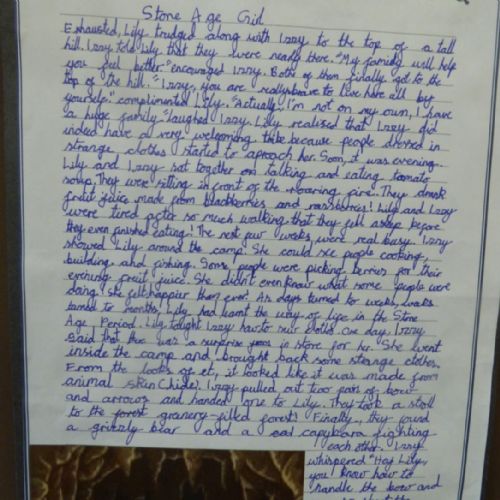 Stone Age Girl
Exhausted, Lily trudged along with Izzy to the top of a tall
hill. Izzy told Lily that they were nearly there. "My family will help
you feel better." encouraged Izzy. Both of them finally got to the
top of the hill. "Izzy, you are really brave to live here all by
yourself." complimented Lily. "Actually, I'm not on my own, I have
a huge family." laughed Izzy. Lily realised that Izzy did
indeed have a very welcoming tribe because people dressed in
strange clothes started to aproach her. Soon, it was evening.
Lily and Izzy sat together on talking and eating tomato
soup. They were sitting in front of the roaring fire. They drank
fruit juice made from blackberries and rassberries! Lily and Izzy
were tired after so much walking that they fell asleep before
they even finished eating! The next few weeks were real busy. Izzy
showed Lily around the camp. She could see people cooking,
building and fishing. Some people were picking berries for their
evening fruit juice. She didn't even know what some people were
doing. She felt happier than ever! As days turned to weeks, weeks
turned to months, Lily had learnt the way of life in the Stone
Age Period. Lily taught Izzy how to sew cloths. One day, Izzy
said that there was a surprise in store for her. She went
inside the camp and brought back some strange clothes.
From the looks of it, it looked like it was made from
animal skin (hide). Izzy pulled out two pairs of bow
and arrows and handed one to Lily. They took a stroll
to the forest granery-filled forest. Finally, they found
a grizzly bear and a capybara fighting
each other. Izzy
whispered "Hey Lily,
you know how to
handle the bow and